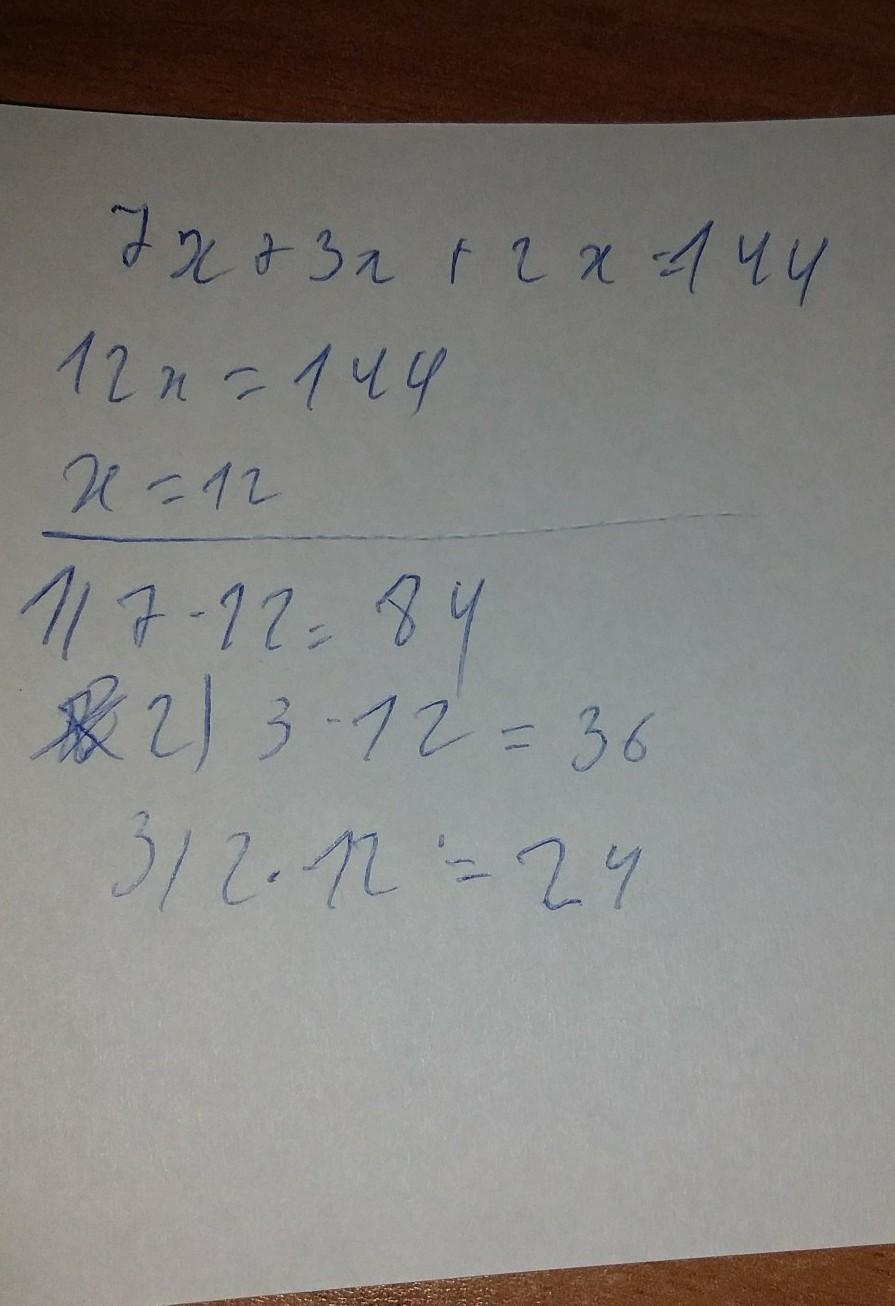 7x+3x+2x=144
12x=144
x=12
1) 7·12=84
2) 3·12=36
3) 2·12=24